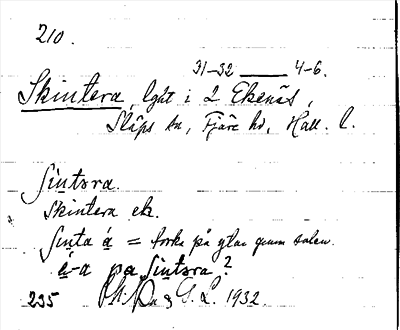 210.
31–32 —— 4–6.
Skintera, lght i 2 Ekenäs,
Släps sn, Fjäre hd, Hall. l.
ʃintəra.
Skintera ek.
ʃinta á = torka på ytan genom solen.
é-a pa ʃintəra?
235 G. L. 1932